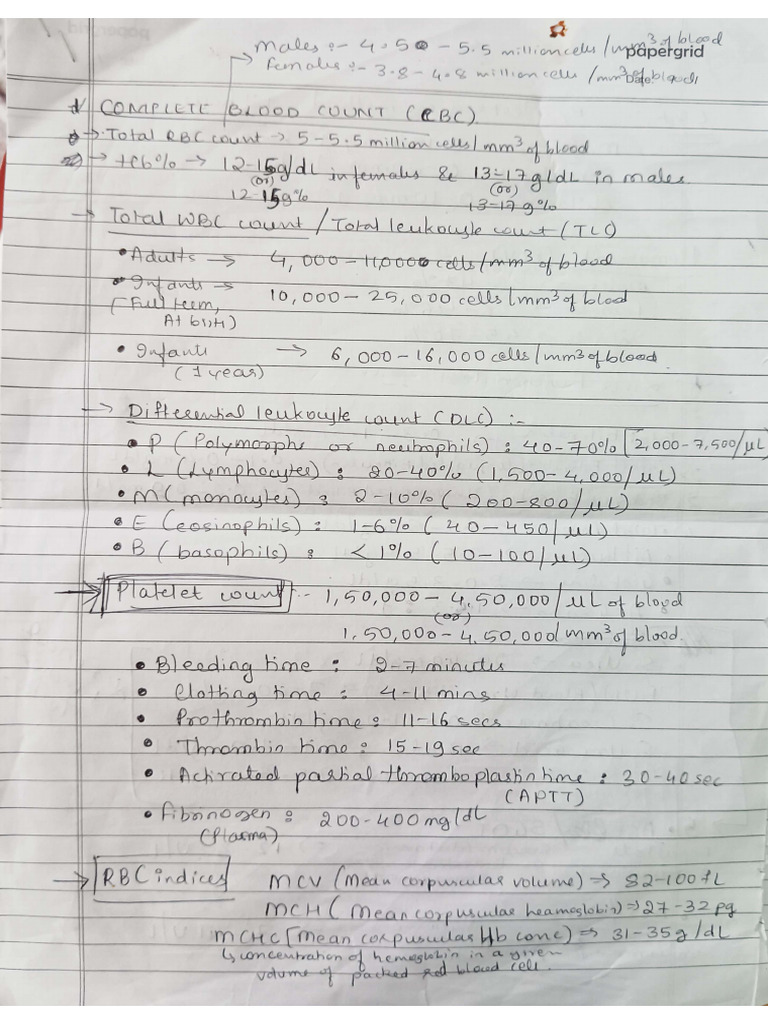 Males :- 4.50 - 5.5 million cells / mm³ of blood
papergrid
Females :- 3.8 - 4.8 million cells / mm³ of blood
Date:
COMPLETE BLOOD COUNT (CBC)
→ Total RBC count → 5-5.5 million cells/mm³ of blood
→ Hb% → 12-15g/dL in females & 13-17g/dL in males
(or) (or)
12-15g% 13-17g%
→ Total WBC count / Total leukocyte count (TLC)
• Adults → 4,000-11,000 cells/mm³ of blood
• Infants → 10,000-25,000 cells/mm³ of blood
(Full term,
At birth)
• Infants → 6,000-16,000 cells/mm³ of blood
(1 year)
→ Differential leukocyte count (DLC) :-
• P (Polymorphs or neutrophils) : 40-70% (2,000-7,500/µL)
• L (Lymphocytes) : 20-40% (1,500-4,000/µL)
• M (monocytes) : 2-10% (200-800/µL)
• E (eosinophils) : 1-6% (40-450/µL)
• B (basophils) : <1% (10-100/µL)
→ Platelet count :- 1,50,000-4,50,000/µL of blood
(or)
1,50,000-4,50,000/mm³ of blood.
• Bleeding time : 2-7 minutes
• Clotting time : 4-11 mins
• Prothrombin time : 11-16 secs
• Thrombin time : 15-19 sec
• Activated partial thromboplastin time : 30-40 sec
(APTT)
• Fibrinogen : 200-400 mg/dL
(Plasma)
→ RBC indices MCV (Mean corpuscular volume) → 82-100 fL
MCH (Mean corpuscular heamoglobin) → 27-32 pg
MCHC (Mean corpuscular Hb conc) → 31-35 g/dL
↳ concentration of hemoglobin in a given
volume of packed red blood cell.